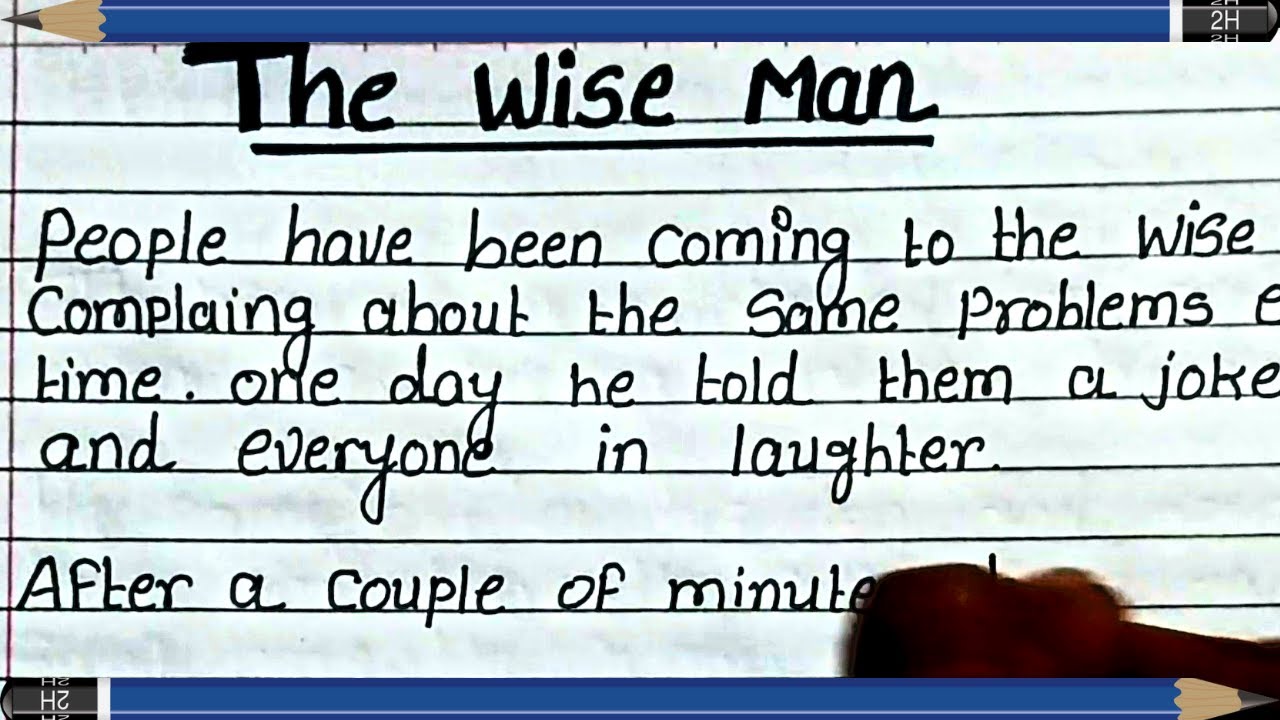 2H
The Wise Man
People have been coming to the wise
Complaing about the same problems e
time. one day he told them a joke
and everyone in laughter.
After a couple of minute
2H